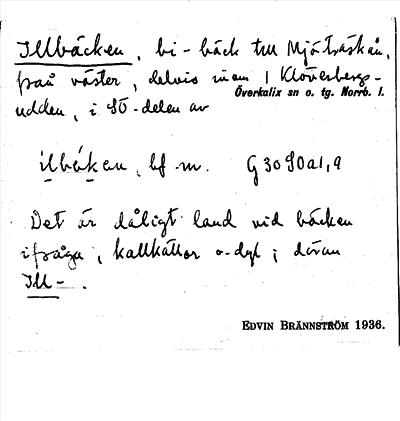 Illbäcken, bi-bäck till Mjöträskån,
från väster, delvis inom 1 Klöverbergs-
Överkalix sn o. tg. Norrb. l.
udden, i SO-delen av
ilbäkan, bf. m. G 30 90 a1,9
Det är dåligt land vid bäcken
ifråga, kallkällor o. dyl; därav
Ill-.
EDVIN BRÄNNSTRÖM 1936.